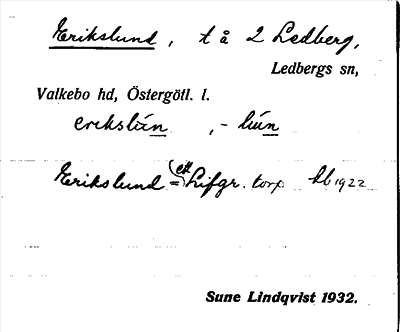 Erikslund, t å 2 Ledberg,
Ledbergs sn,
Valkebo hd, Östergötl. l.
erikslún , - lúun
Erikslund = (ett Lifgr. torp kb 1922
Sune Lindqvist 1932.